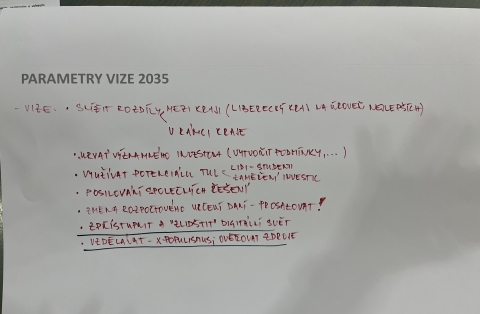 PARAMETRY VIZE 2035
- VIZE: • SNÍŽIT ROZDÍLY MEZI KRAJI (LIBERECKÝ KRAJ NA ÚROVEŇ NEJLEPŠÍCH)
V RÁMCI KRAJE
• ZÍSKAT VÝZNAMNÉHO INVESTORA (VYTVOŘIT PODMÍNKY,...)
• VYUŽÍVAT POTENCIÁLU TUL - LIDI - STUDENTI
ZAMĚŘENÍ INVESTIC
• POSILOVÁNÍ SPOLEČNÝCH ŘEŠENÍ
• ZMĚNA ROZPOČTOVÉHO URČENÍ DANÍ - PROSAZOVAT!
• ZPŘÍSTUPNIT A "ZLIDŠTIT" DIGITÁLNÍ SVĚT
• VZDĚLÁVAT - X POPULISMUS; OVĚŘOVAT ZDROJE